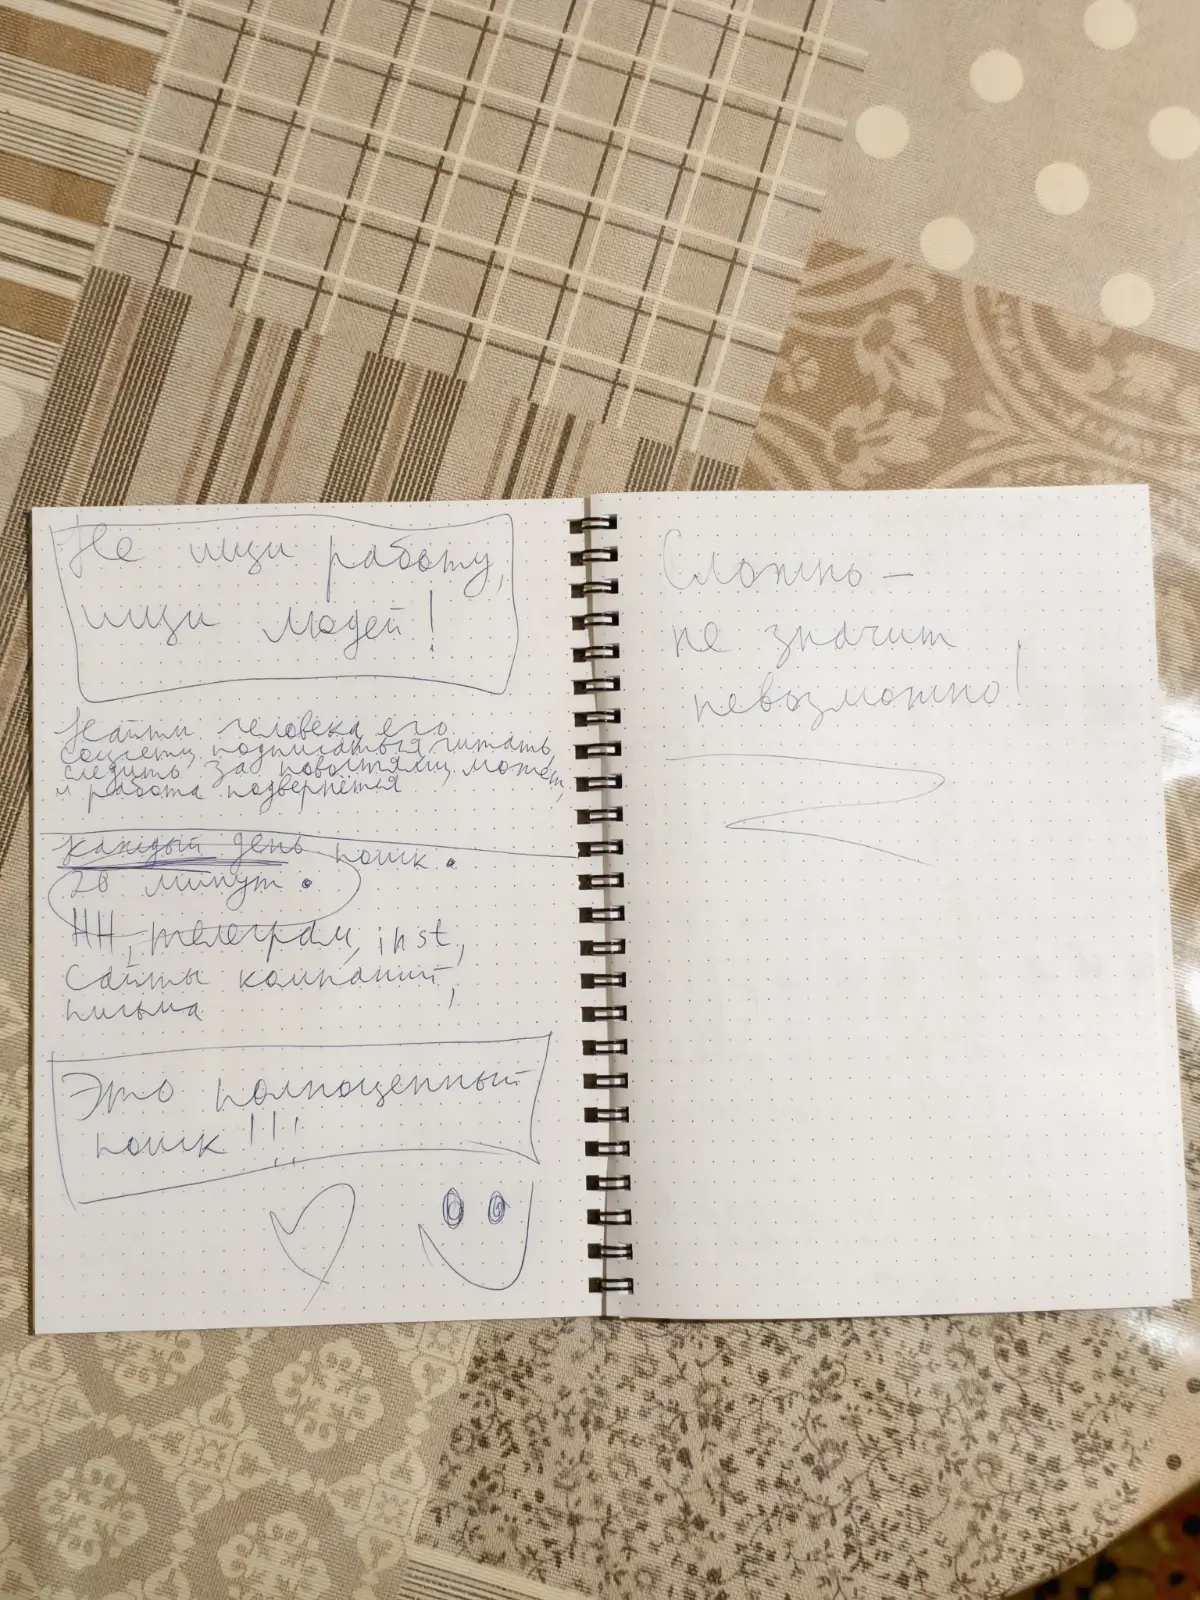 Не ищи работу,
ищи людей!
Найти человека, его
соцсети, подписаться, читать,
следить за новостями, может,
и работа подвернётся
Каждый день поиск.
20 минут.
HH, телеграм, inst,
сайты компаний,
письма
Это полноценный
поиск!!!
Сложно –
не значит
невозможно!